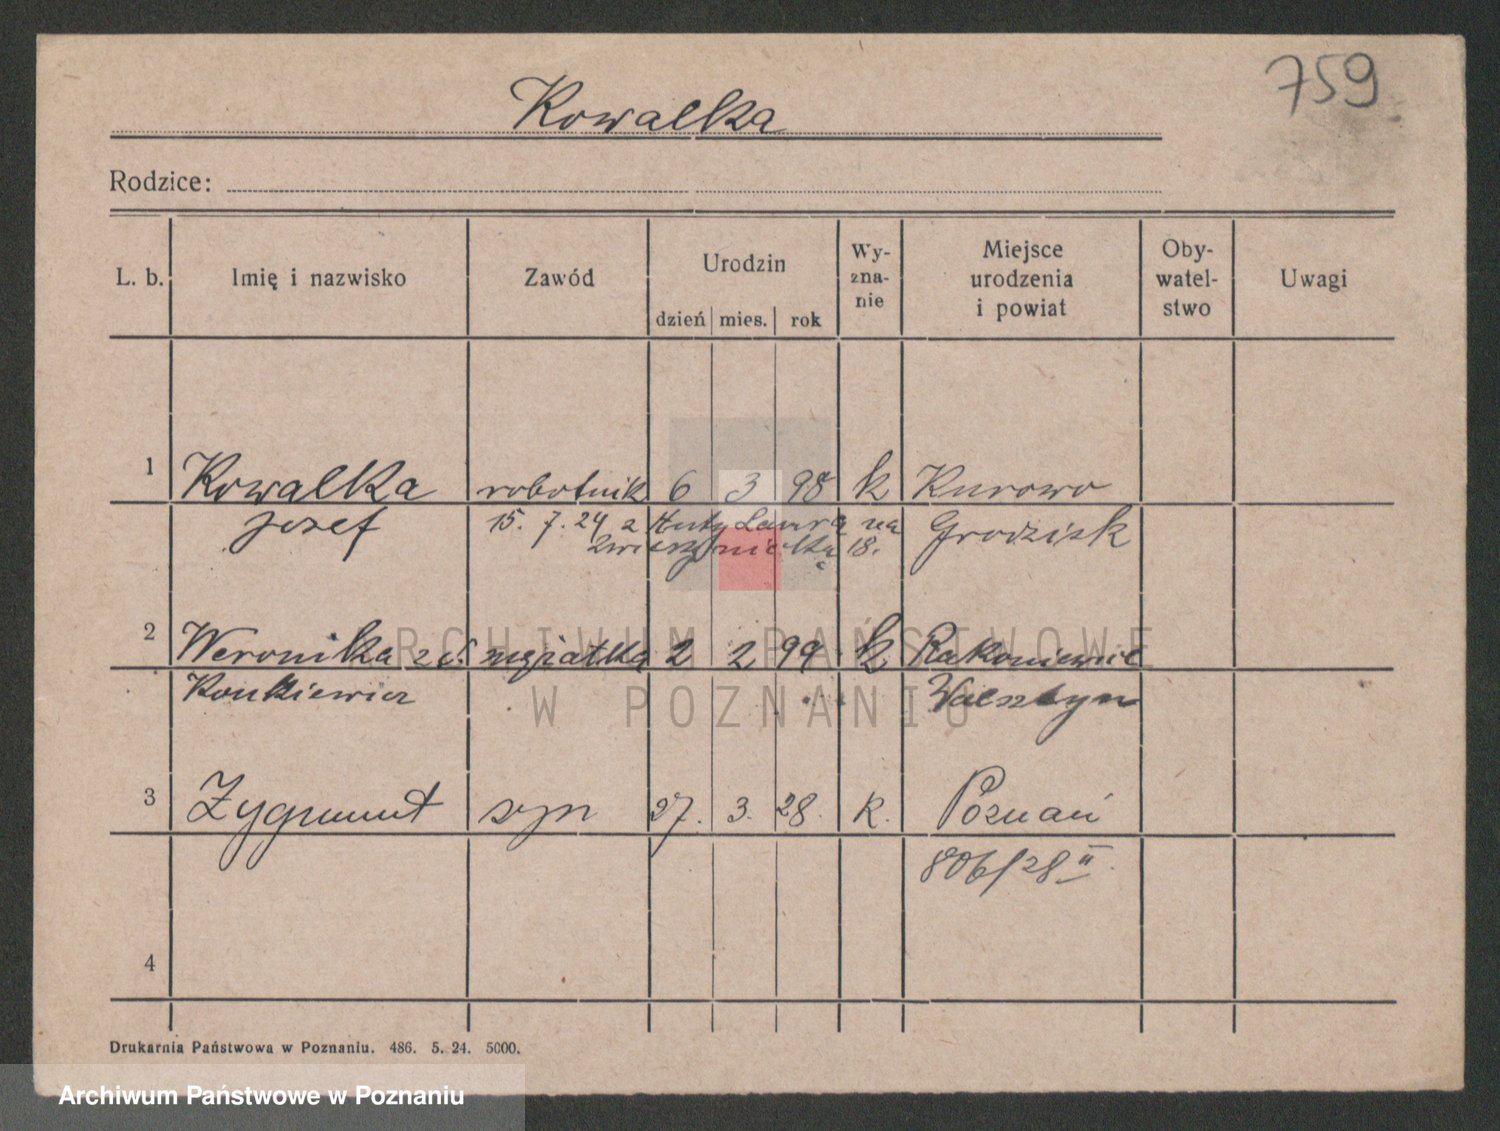 759
Kowalka
Rodzice:
L. b. Imię i nazwisko Zawód Urodzin dzień mies. rok Wy-zna-nie Miejsce urodzenia i powiat Oby-watel-stwo Uwagi
1 Kowalka robotnik 6 3 98 k Kurowo
Józef 15. 7. 24 z Huty Laura na Grodzisk
Zwierzyniecką 18.
2 Weronika z d. mężatka 2 2 99 k Rakoniewice
Konkiewicz Wolsztyn
3 Zygmunt syn 27. 3. 28. k. Poznań
806/28 II
4
Drukarnia Państwowa w Poznaniu. 486. 5. 24. 5000.
ARCHIWUM PAŃSTWOWE
W POZNANIU
Archiwum Państwowe w Poznaniu